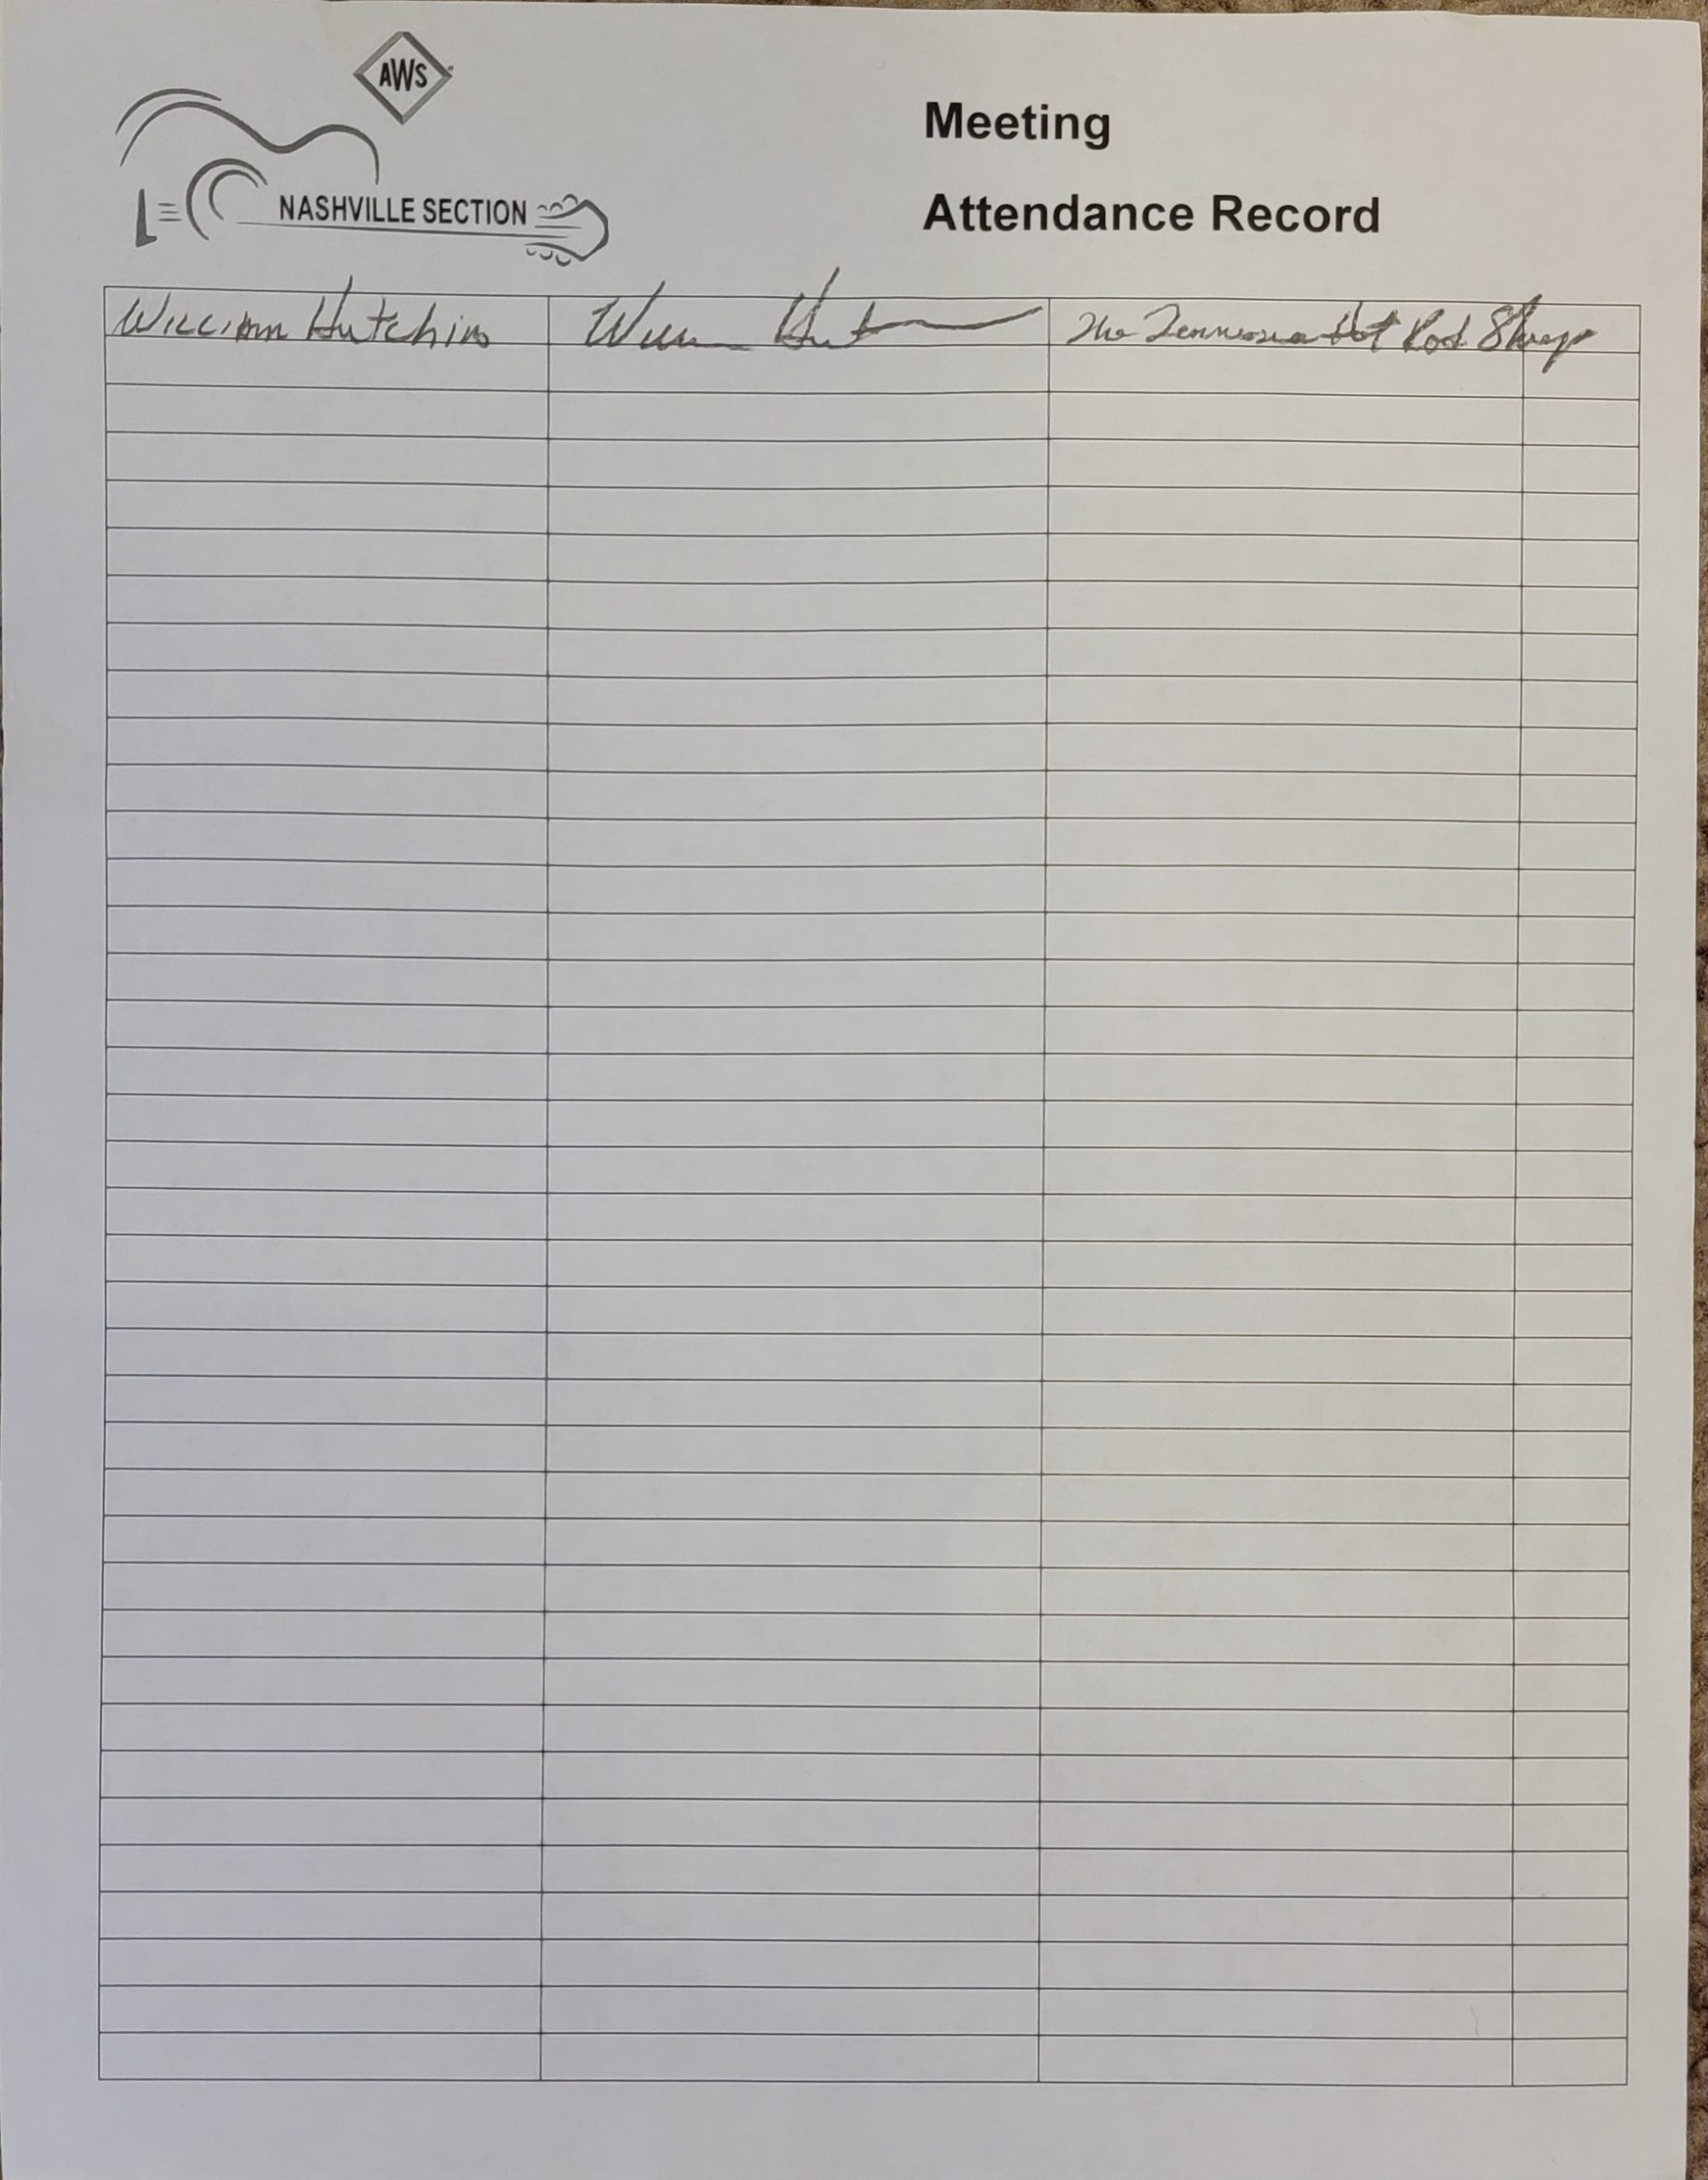 AWS
NASHVILLE SECTION
Meeting
Attendance Record
William Hutchins
The Tennessee Hot Rod Shop